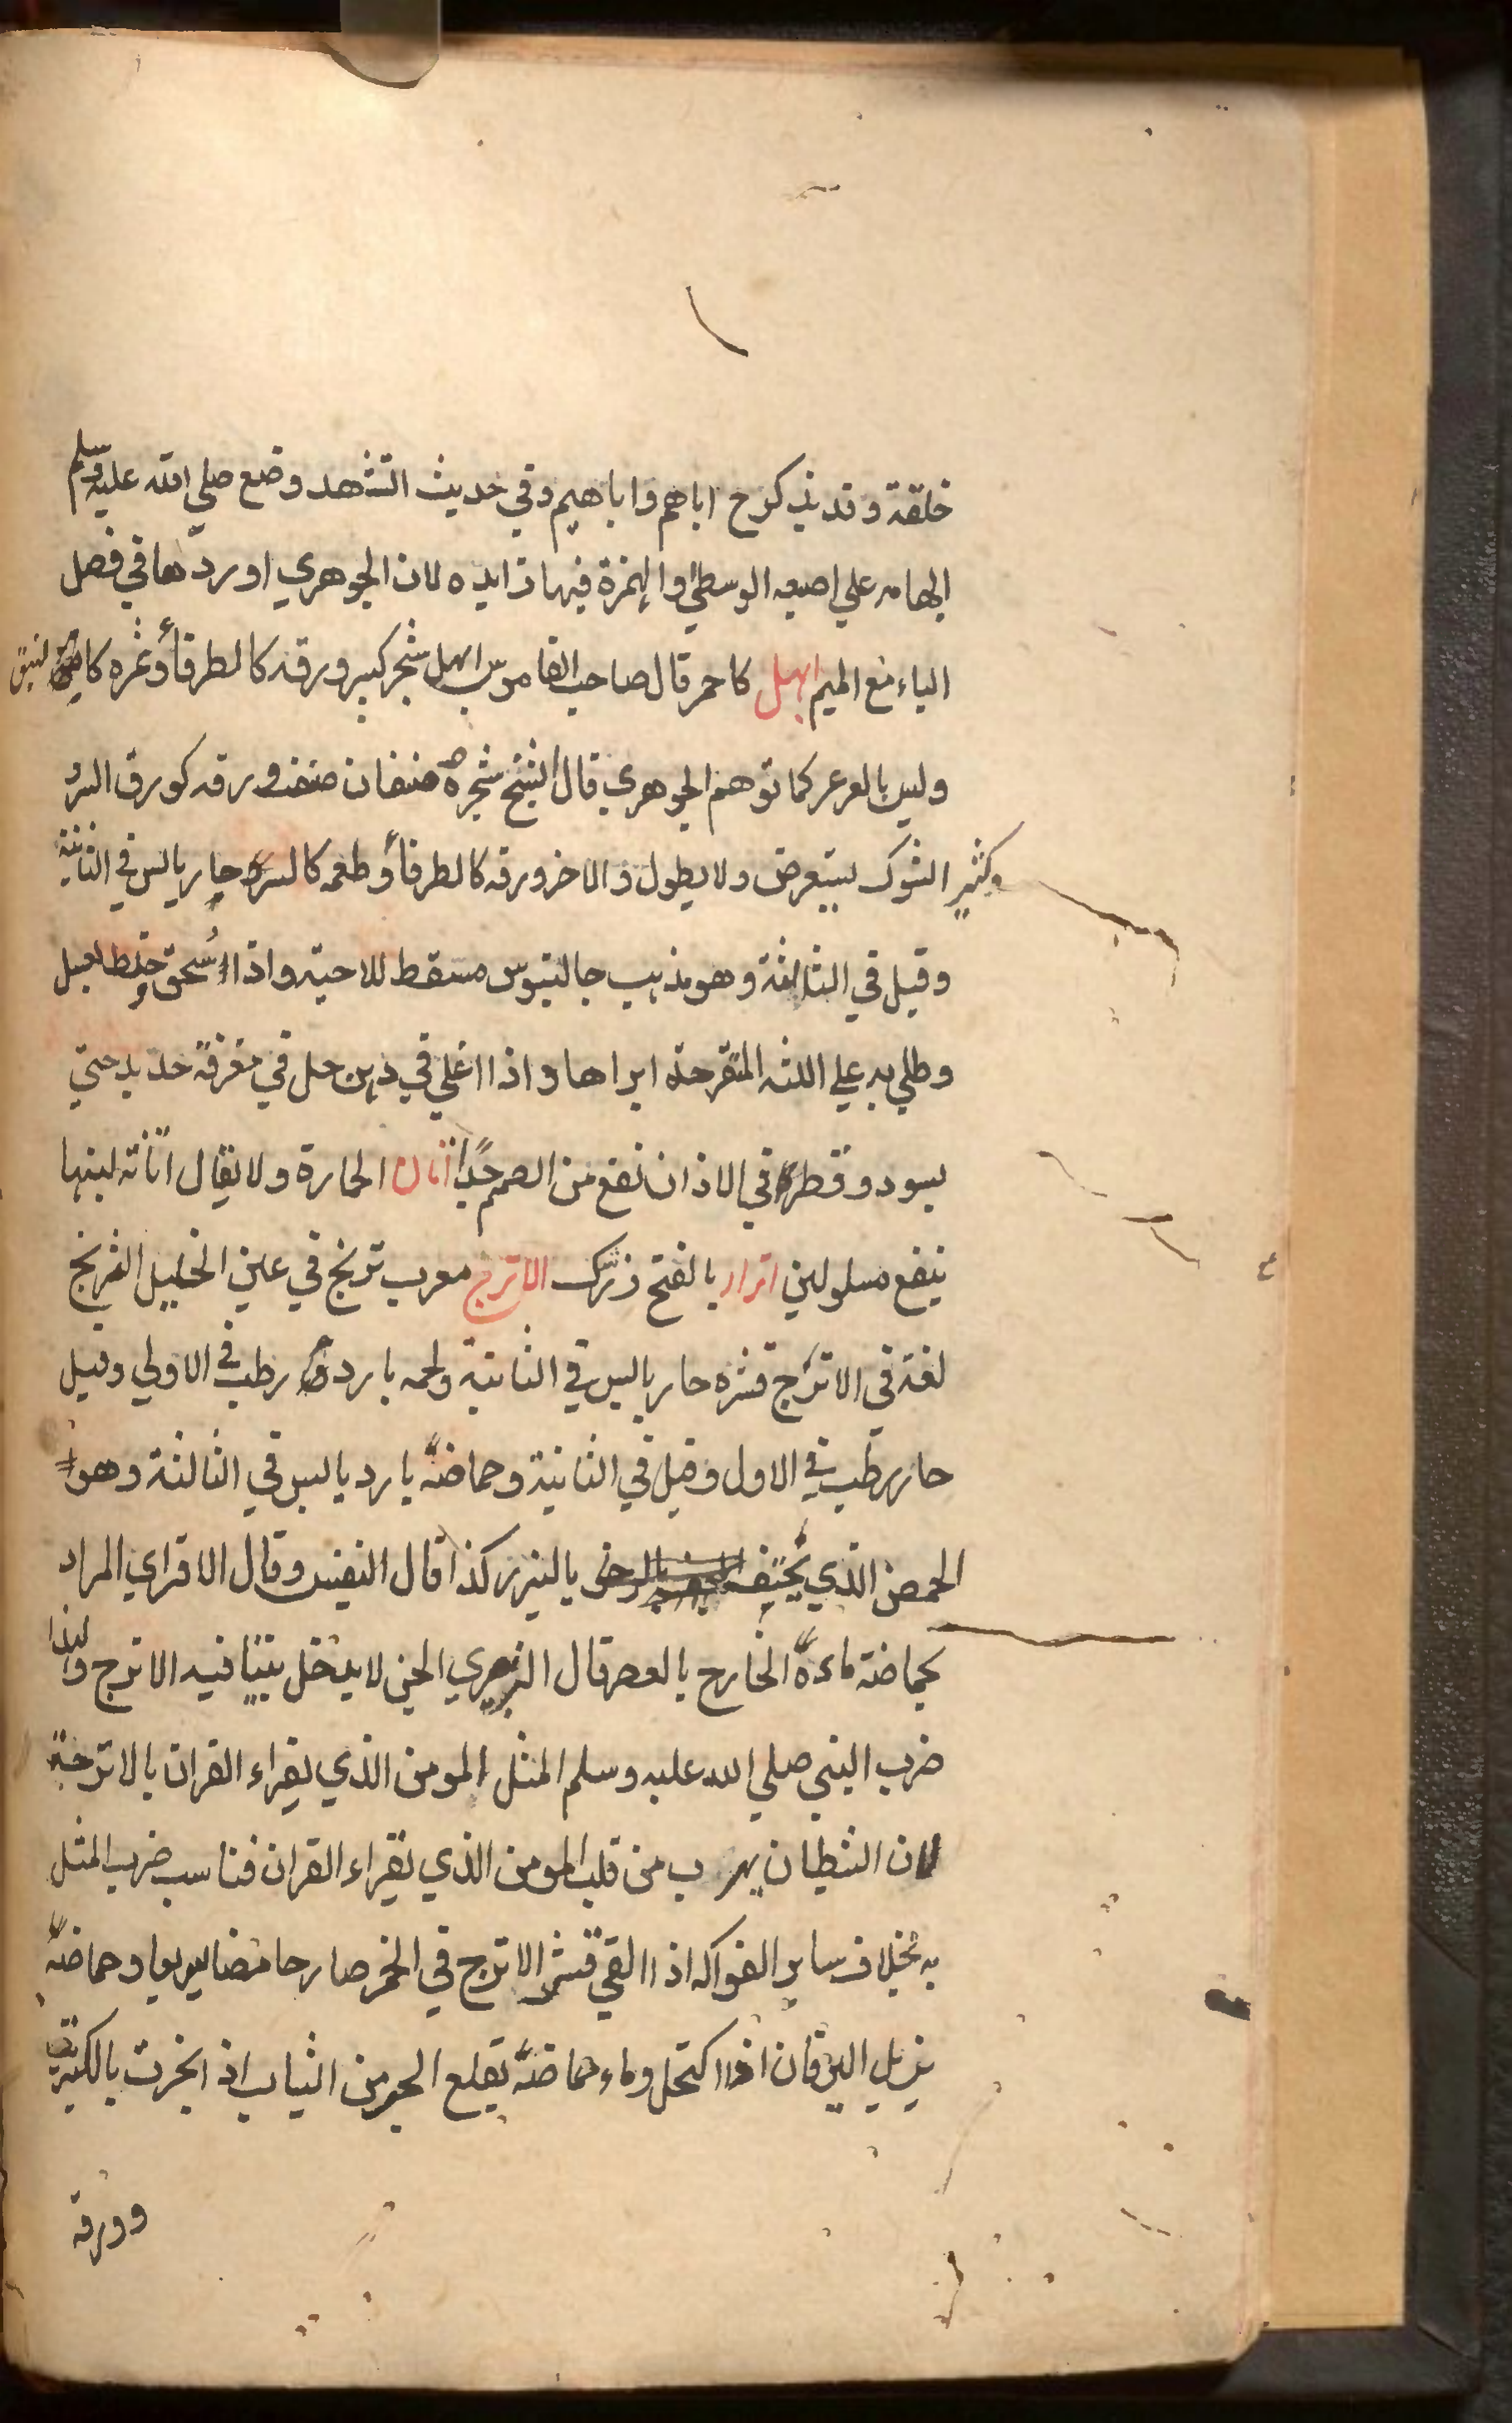 خلقة وقد يذكر ج اباهم واباهيم وفي حديث التشهد وضع صلي الله عليه وسلم
ابهامه علي اصبعه الوسطي والهمزة فيها زايده لان الجوهري اوردها في فصل
الباء مع الميم ابهل كاحمر قال صاحب القاموس ابهل شجر كبير ورقه كالطرفأ وثمره كالنبق
وليس بالعرعر كما توهم الجوهري قال الشيخ شجره صنفان صنف ورقه كورق السرو
وكثير الشوك يستعرض ولا يطول والاخر ورقه كالطرفأ وطعمه كالسرو حار يابس في الثانية
وقيل في الثالثة وهو مذهب جالينوس مسقط للاجنة واذا اسحق وخلط بعسل
وطلي به علي اللثه المتقرحة ابراها واذا اغلي في دهن حل في مغرفة حديد حتي
يسود وقطر في الاذان نفع من الصمم جدًا اتان الحمارة ولا يقال اتانة لبنها
ينفع مسلولين اترار بالفتح زرشك الاترج معرب ترنج في عين الخليل الترنج
لغة في الاترج قشره حار يابس في الثانية ولحمه بارد رطب في الاولي وقيل
حار رطب في الاول وقيل في الثانية وحماضه بارد يابس في الثالثة وهو
الحمض الذي بالنيزر كذا قال النفيس وقال الاقراي المراد
بحماضة ماءه الخارج بالعصر قال الجن لا يدخل بيتًا فيه الاترج ولهذا
ضرب النبي صلي الله عليه وسلم المثل المومن الذي يقراء القران بالاترجة
لان الشيطان يهرب من قلب المومن الذي يقراء القران فناسب ضرب المثل
به بخلاف ساير الفواكه اذا القي قشر الاترج في الخمر صار حامضا سريعا وحماضه
يزيل اليرقان اذا اكتحل وماء حماضه يقلع الحبر من الثياب اذا بخرت بالكبريت
وورقه